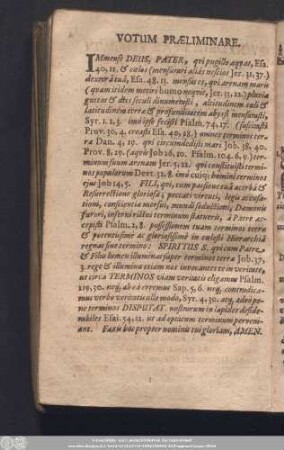 VOTUM PRÆLIMINARE.
IMmense DEUS, PATER, qvi pugillo aqvas, Esa.
40, 12. & cœlos (mensurari aliàs nescios Jer. 31, 37.)
dexterâ tuâ, Esa. 48, 13. mensus es, qvi arenam maris
(quam iridem metiri homo neqvit, Jer. 33, 22.) pluviæ
guttas & dies seculi dinumerasti, altitudinem cœli &
latitudinem terræ & profunditatem abyssi mensus
Syr. 1, 2. 3. imò ipse fecisti Psalm. 74, 17. (suscitasti
Prov. 30, 4. creasti Esa. 40, 28.) omnes terminos ter-
ræ Dan. 4, 19. qvi circumdedisti mari Job. 38, 40.
Prov. 8, 29. (aqvis Job 26, 10. Psalm. 104, 6, 9.) ter-
minum suum arenam Jer. 5, 22. qvi constituisti termi-
nos populorum Devt. 32, 8. imò cuiq; homini terminos
ejus Job 14, 5. FILI, qvi, cum passione tuâ acerbâ &
Resurrectione gloriosâ peccati virus, legis accusa-
tioni, conscientiæ morsui, mundi seductioni, Dæmonis
furori, inferni rictui terminum statueris, à Patre ac-
cepisti Psalm. 2, 8. possessionem tuam terminos terræ
& potentissimè ac gloriosissimè in cœlesti Hierarchiâ
regnas sine termino: SPIRITUS S. qvi cum Patre
& Filio lumen illuminas super terminos terræ Job. 37,
3. rege & illumina etiam nos invocantes te in veritate,
ut circa TERMINOS viam veritatis eligamus Psalm.
119, 30. neq; ab eâ erremus Sap. 5, 6. neq; contradica-
mus verbo veritatis ullo modo, Syr. 4, 30. atq; adeò po-
ne terminos DISPUTAT. nostrarum in lapides deside-
rabiles Esai. 54, 12. ut ad optatum terminum perveni-
ant. Faxis hoc propter nominis tui gloriam, AMEN.